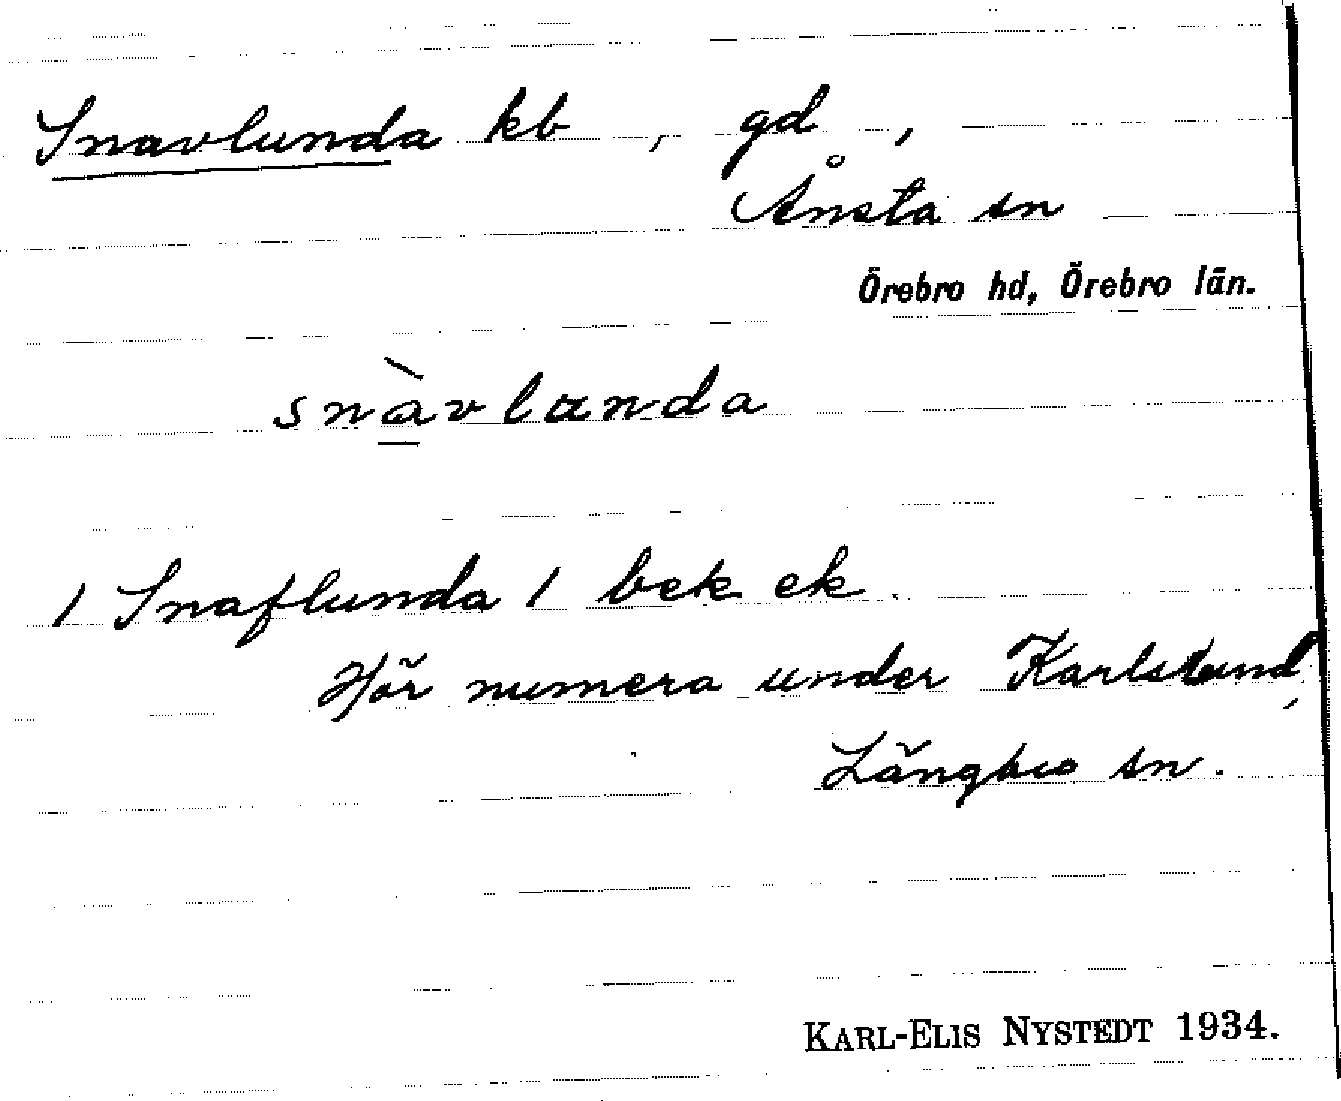 Snavlunda kb, gd,
Ånsta sn
Örebro hd, Örebro län.
snàvlanda
/ Snaflunda / bek ek.
Hör numera under Karlslund,
Långbro sn.
KARL-ELIS NYSTEDT 1934.